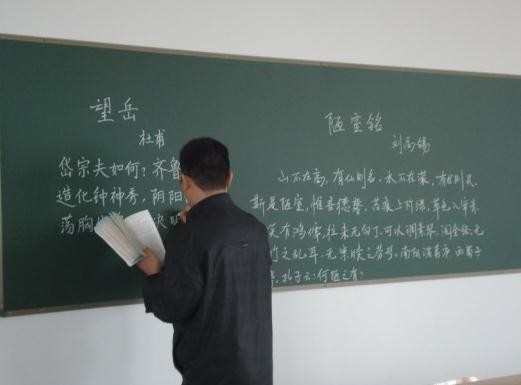 望岳
杜甫
岱宗夫如何？齐鲁
造化钟神秀，阴阳
荡胸
陋室铭
刘禹锡
山不在高，有仙则名。水不在深，有龙则灵。
斯是陋室，惟吾德馨。苔痕上阶绿，草色入帘青
笑有鸿儒，往来无白丁。可以调素琴，阅金经。无
竹之乱耳，无案牍之劳形。南阳诸葛庐，西蜀子
孔子云：何陋之有？